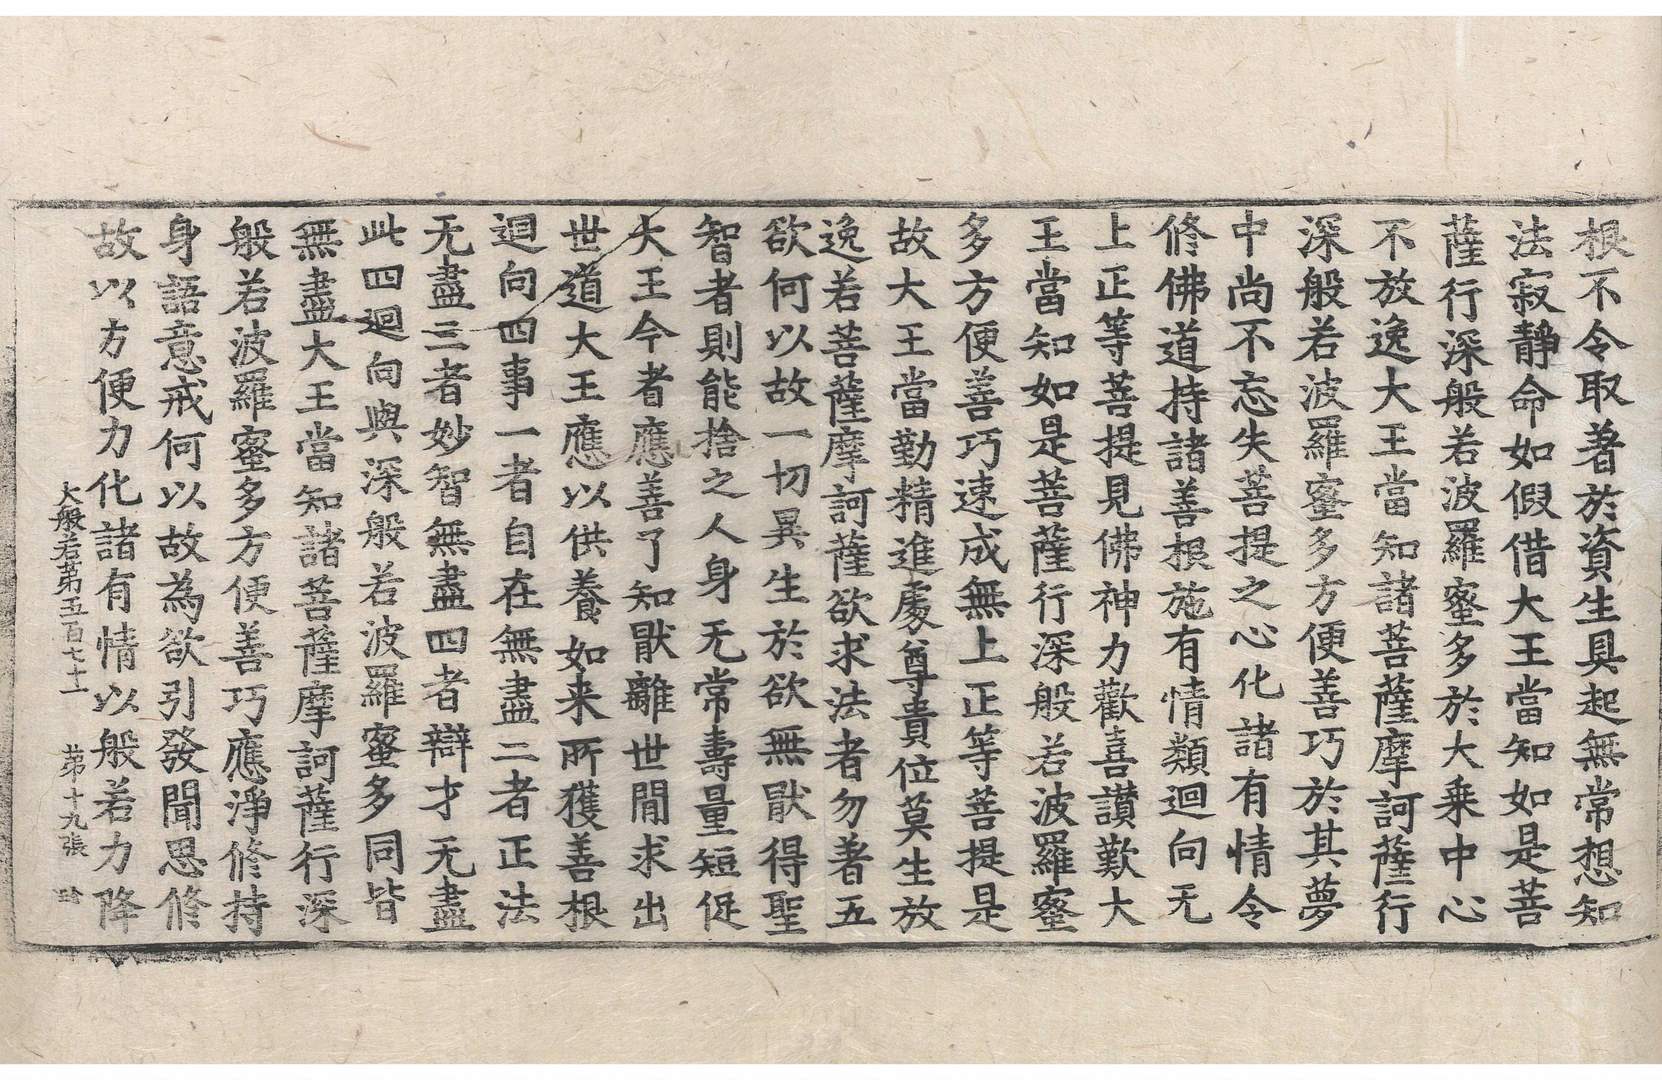 根不令取著於資生具起無常想知
法寂靜命如假借大王當知如是菩
薩行深般若波羅蜜多於大乗中心
不放逸大王當知諸菩薩摩訶薩行
深般若波羅蜜多方便善巧於其夢
中尚不忘失菩提之心化諸有情令
修佛道持諸善根施有情類迴向无
上正等菩提見佛神力歡喜讃歎大
王當知如是菩薩行深般若波羅蜜
多方便善巧速成無上正等菩提是
故大王當勤精進處尊貴位莫生放
逸若菩薩摩訶薩欲求法者勿著五
欲何以故一切異生於欲無猒得聖
智者則能捨之人身无常壽量短促
大王今者應善了知猒離世間求出
世道大王應以供養如来所獲善根
迴向四事一者自在無盡二者正法
无盡三者妙智無盡四者辯才无盡
此四迴向與深般若波羅蜜多同皆
無盡大王當知諸菩薩摩訶薩行深
般若波羅蜜多方便善巧應淨修持
身語意戒何以故為欲引發聞思修
故以方便力化諸有情以般若力降
大般若第五百七十一 第十九張